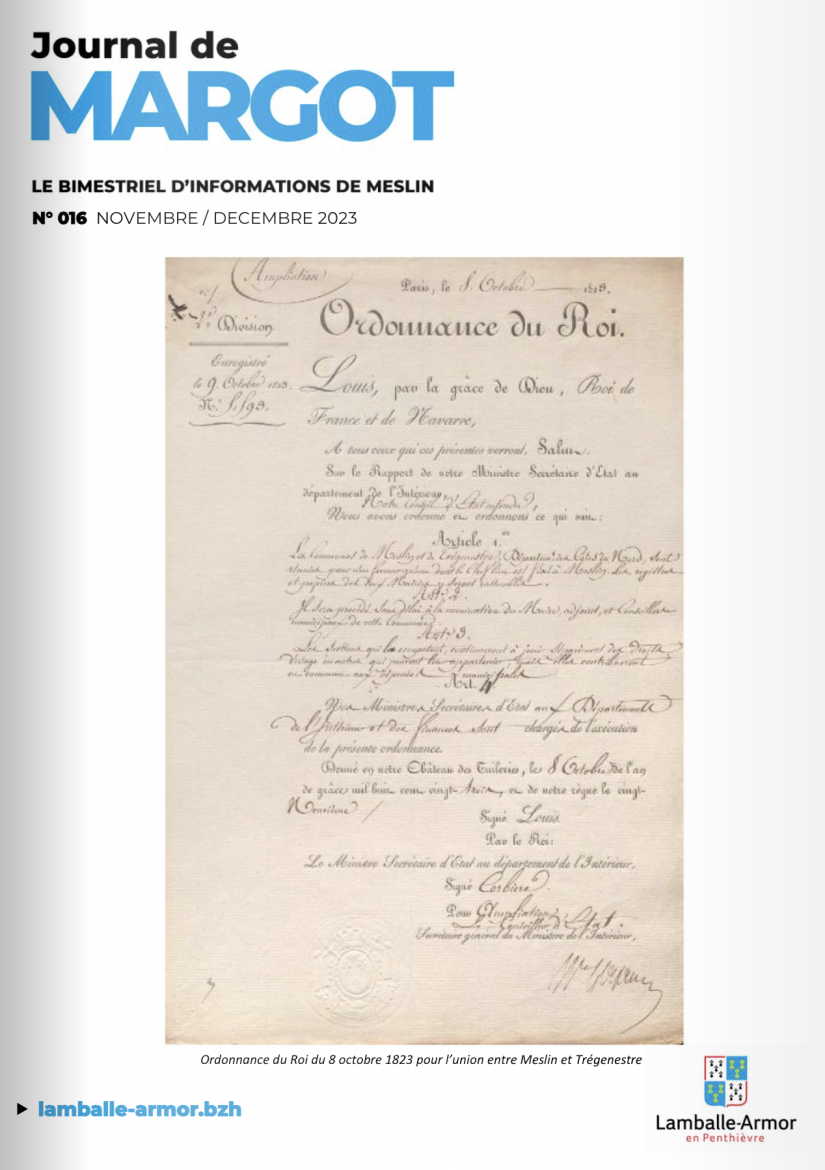 Journal de
MARGOT
LE BIMESTRIEL D'INFORMATIONS DE MESLIN
N° 016 NOVEMBRE / DECEMBRE 2023
Ampliation
Paris, le 8. Octobre 1823.
Division.
Ordonnance du Roi.
Enregistré
le 9. Octobre 1823.
Louis, par la grâce de Dieu, Roi de
France et de Navarre,
A tous ceux qui ces présentes verront, Salut.
Sur le Rapport de notre Ministre Secrétaire d'Etat au
département de l'Intérieur,
Notre Conseil d'Etat entendu,
Nous avons ordonné et ordonnons ce qui suit:
Article 1.er
Les Communes de Meslin et de Trégenestre, Département des Côtes du Nord, sont
réunies pour n'en former qu'une dont le Chef lieu est fixé à Meslin. Les registres
et papiers des deux Mairies y seront
Art. 2.
Il sera procédé sans délai à la nomination du Maire, adjoint, et Conseillers
municipaux de cette Commune.
Art. 3.
Les Sections qui la composent, continueront à jouir séparément des droits
d'usage ou autres qui peuvent leur appartenir,
en commun aux dépenses municipales
Art. 4
Nos Ministres Secrétaires d'Etat aux Départements
de l'Intérieur et des finances sont chargés de l'exécution
de la présente ordonnance.
Donné en notre Château des Tuileries, le 8 Octobre de l'an
de grâce mil huit cent vingt-trois, et de notre règne le vingt-
Neuvième
Signé Louis.
Par le Roi:
Le Ministre Secrétaire d'Etat au département de l'Intérieur,
Signé Corbière.
Pour Ampliation:
Le Conseiller d'Etat.
Secrétaire général du Ministère de l'Intérieur,
Ordonnance du Roi du 8 octobre 1823 pour l'union entre Meslin et Trégenestre
lamballe-armor.bzh
Lamballe-Armor
en Penthièvre